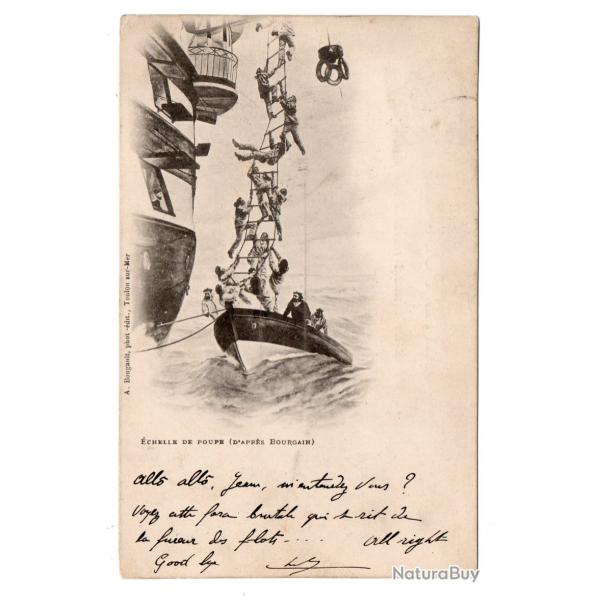 A. Bougault, phot.-édit., Toulon-sur-Mer
ÉCHELLE DE POUPE (D'APRÈS BOURGAIN)
allo allo, Jeam, m'entendez vous ?
Voyez cette force brutale qui se rit de
la fureur des flots - . . . All right
Good bye
NaturaBuy